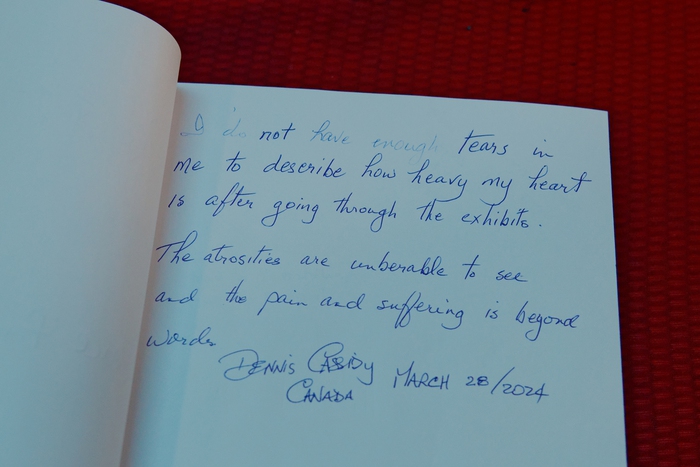 I do not have enough tears in
me to describe how heavy my heart
is after going through the exhibits.
The atrosities are unberable to see
and the pain and suffering is beyond
words
Dennis Casidy March 28/2024
Canada